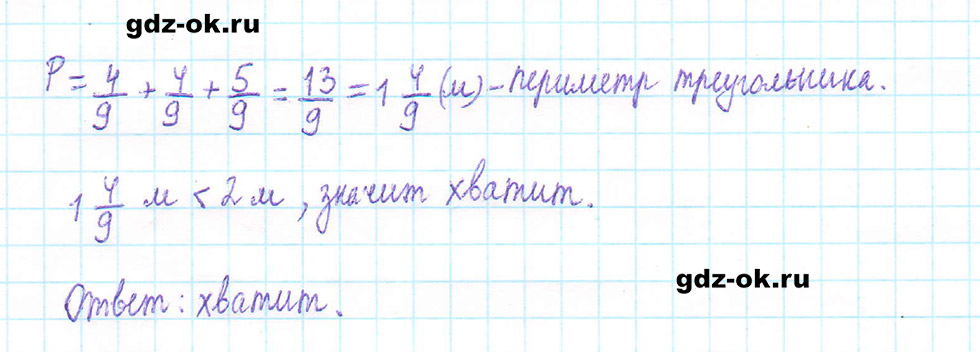 gdz-ok.ru
P = 4/9 + 4/9 + 5/9 = 13/9 = 1 4/9 (м) - периметр треугольника.
1 4/9 м < 2 м, значит хватит.
gdz-ok.ru
Ответ: хватит.